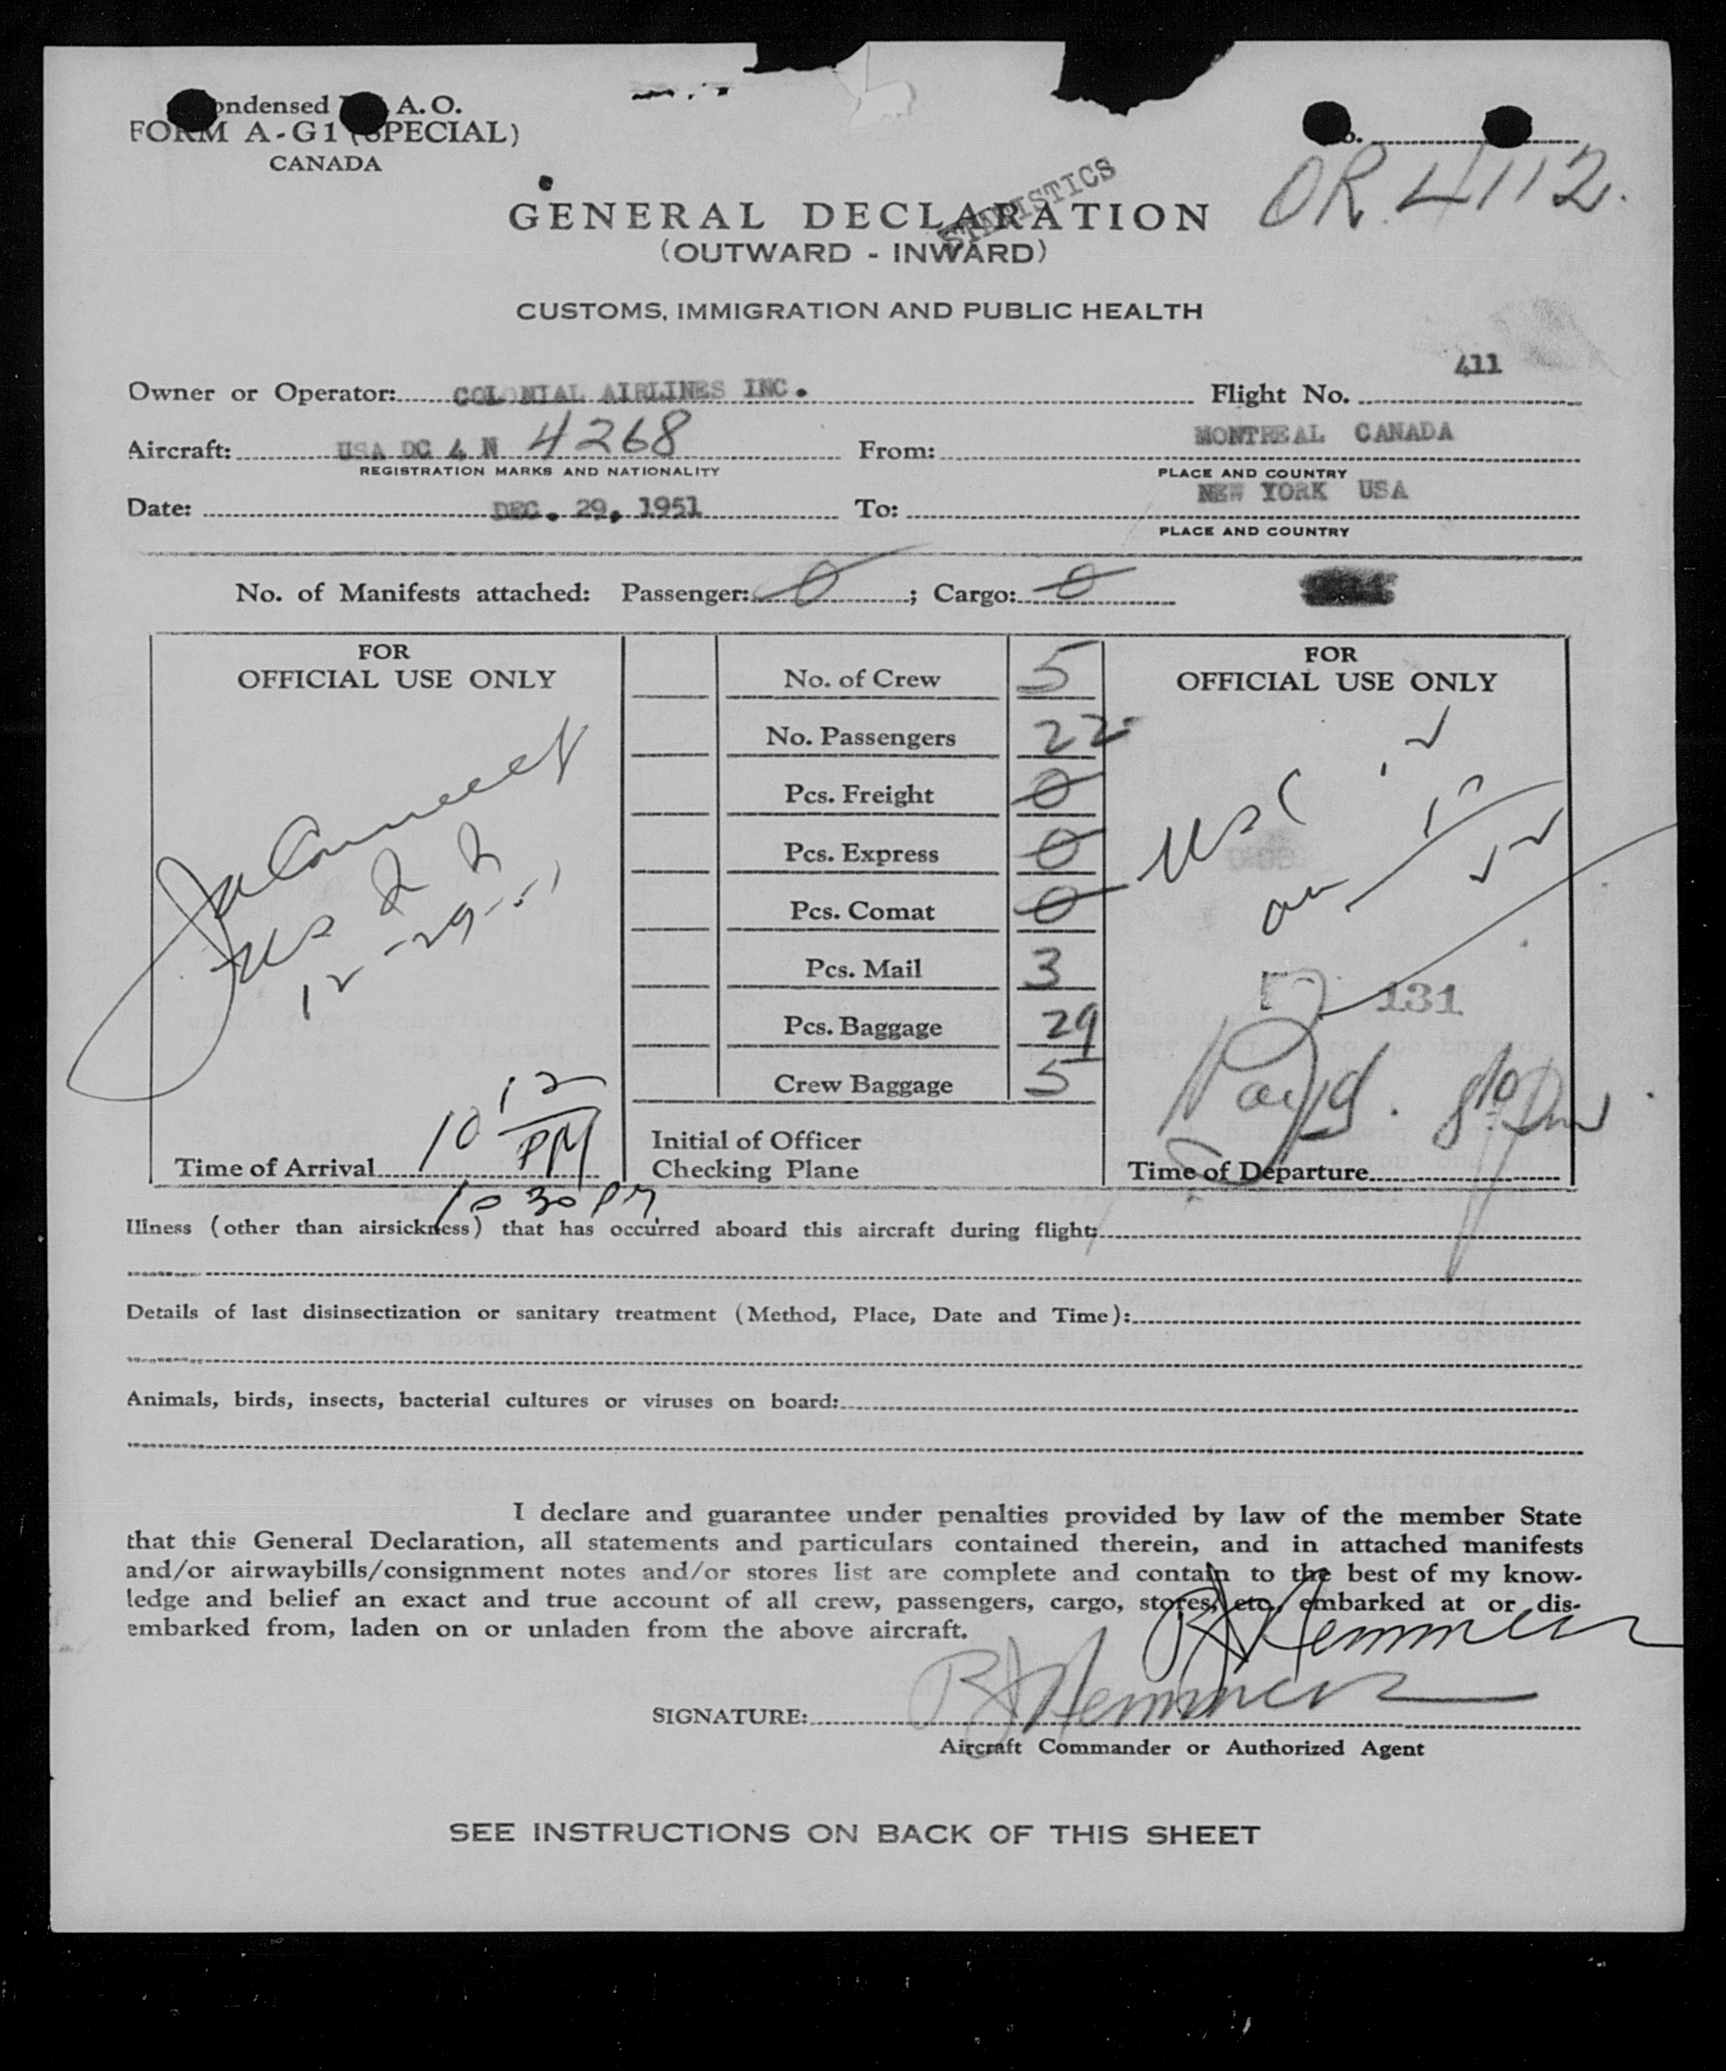 ondensed A. O.
FORM A-G1 (SPECIAL)
CANADA
OR 4112.
STATISTICS
GENERAL DECLARATION
(OUTWARD - INWARD)
CUSTOMS, IMMIGRATION AND PUBLIC HEALTH
411
Owner or Operator: COLONIAL AIRLINES INC. Flight No.
Aircraft: USA DC 4 N 4268 From: MONTREAL CANADA
REGISTRATION MARKS AND NATIONALITY PLACE AND COUNTRY
Date: DEC. 29, 1951 To: NEW YORK USA
PLACE AND COUNTRY
No. of Manifests attached: Passenger: 0 ; Cargo: 0
FOR
OFFICIAL USE ONLY
us 22
12-29-51
Time of Arrival 10 12 PM
10 30 PM
No. of Crew 5
No. Passengers 22
Pcs. Freight 0
Pcs. Express 0
Pcs. Comat 0
Pcs. Mail 3
Pcs. Baggage 29
Crew Baggage 5
Initial of Officer
Checking Plane
FOR
OFFICIAL USE ONLY
131
Time of Departure
Illness (other than airsickness) that has occurred aboard this aircraft during flight:
Details of last disinsectization or sanitary treatment (Method, Place, Date and Time):
Animals, birds, insects, bacterial cultures or viruses on board:
I declare and guarantee under penalties provided by law of the member State
that this General Declaration, all statements and particulars contained therein, and in attached manifests
and/or airwaybills/consignment notes and/or stores list are complete and contain to the best of my know-
ledge and belief an exact and true account of all crew, passengers, cargo, stores, etc. embarked at or dis-
embarked from, laden on or unladen from the above aircraft.
R Hemmen
SIGNATURE: R Hemmen
Aircraft Commander or Authorized Agent
SEE INSTRUCTIONS ON BACK OF THIS SHEET